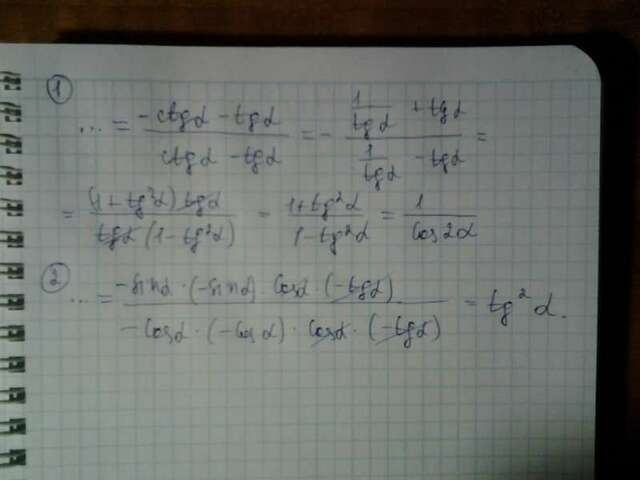 1
... = (-ctgα - tgα)/(ctgα - tgα) = - (1/tgα + tgα)/(1/tgα - tgα) =
= ((1 + tg²α) tgα)/(tgα (1 - tg²α)) = (1 + tg²α)/(1 - tg²α) = 1/cos2α
2
... = (-sinα · (-sinα) cosα · (-tgα))/(-cosα · (-cosα) · cosα · (-tgα)) = tg²α.